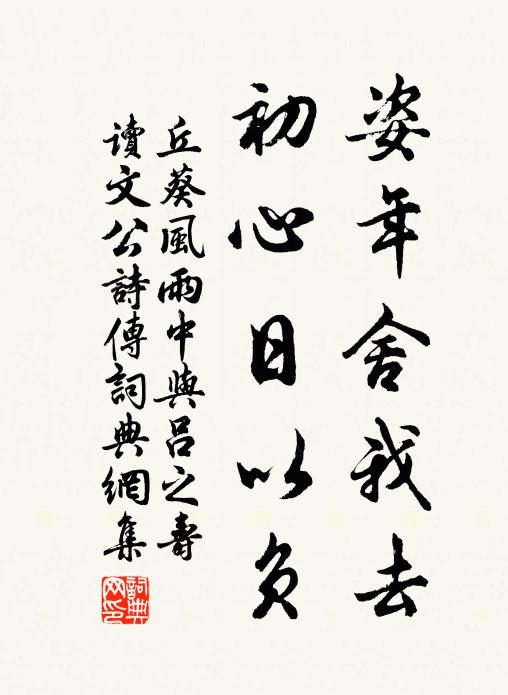 姿年舍我去
初心日以负
丘葵風雨中與呂之壽
讀文公詩傳詞典網集
詞典網印